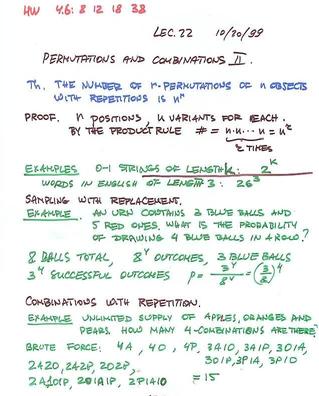 HW 4.6: 8 12 18 38
LEC. 22 10/20/99
PERMUTATIONS AND COMBINATIONS II.
Th. THE NUMBER OF r-PERMUTATIONS OF n OBJECTS
WITH REPETITIONS IS n^r
PROOF. r POSITIONS, n VARIANTS FOR EACH.
BY THE PRODUCT RULE # = n·n·... n = n^r
r TIMES
EXAMPLES 0-1 STRINGS OF LENGTH k: 2^k
WORDS IN ENGLISH OF LENGTH 3: 26^3
SAMPLING WITH REPLACEMENT.
EXAMPLE. AN URN CONTAINS 3 BLUE BALLS AND
5 RED ONES. WHAT IS THE PROBABILITY
OF DRAWING 4 BLUE BALLS IN A ROW?
8 BALLS TOTAL, 8^4 OUTCOMES, 3 BLUE BALLS
3^4 SUCCESSFUL OUTCOMES P = 3^4/8^4 = (3/8)^4
COMBINATIONS WITH REPETITION.
EXAMPLE UNLIMITED SUPPLY OF APPLES, ORANGES AND
PEARS. HOW MANY 4-COMBINATIONS ARE THERE?
BRUTE FORCE: 4A, 4O, 4P, 3A1O, 3A1P, 3O1A,
3O1P, 3P1A, 3P1O
2A2O, 2A2P, 2O2P,
2A1O1P, 2O1A1P, 2P1A1O = 15